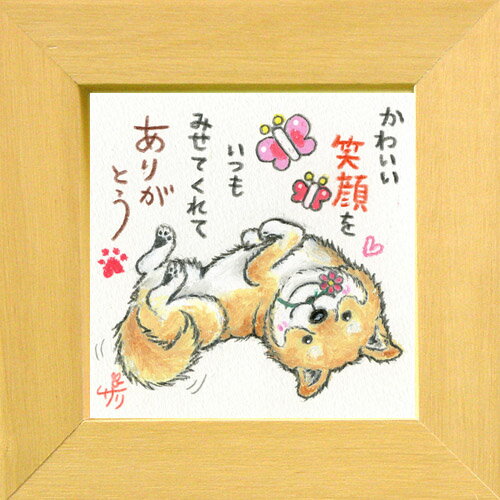 かわいい
笑顔を
いつも
みせてくれて
ありが
とう